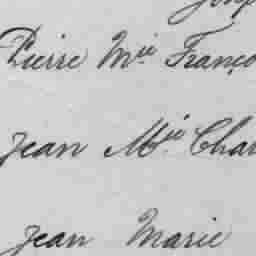 Pierre Mie Franço
Jean Mie Char
Jean Marie